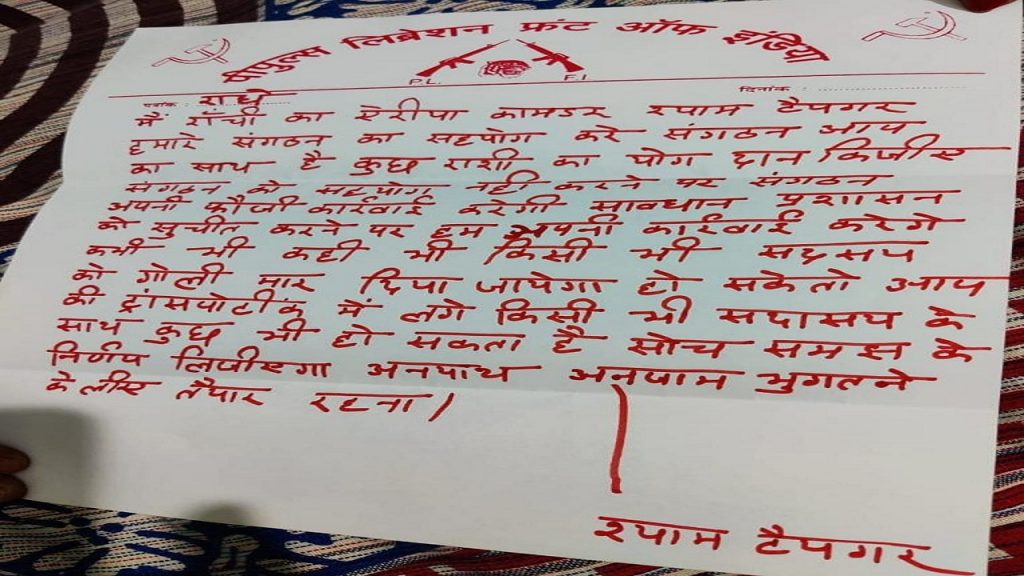 पीपुल्स लिब्रेशन फ्रंट ऑफ इंडिया
P.L. F.I.
पत्रांक : राधे दिनांक :
मैं राँची का ऐरीया कामडर श्याम टैपगर
हमारे संगठन का सहयोग करे संगठन आप
का साथ है कुछ राशी का योग दान किजीए
संगठन को सहयोग नही करने पर संगठन
अपनी फौजी कार्रवाई करेगी सावधान प्रशासन
को सुचीत करने पर हम अपनी कार्रवाई करेगे
कभी भी कही भी किसी भी सदसय
को गोली मार दिया जायेगा हो सकेतो आप
की ट्रांसपोटींक में लगे किसी भी सदासय के
साथ कुछ भी हो सकता है सोच समझ के
निर्णय लिजीएगा अनयाथ अनजाम भुगतने
के लीए तैयार रहना।
श्याम टैपगर